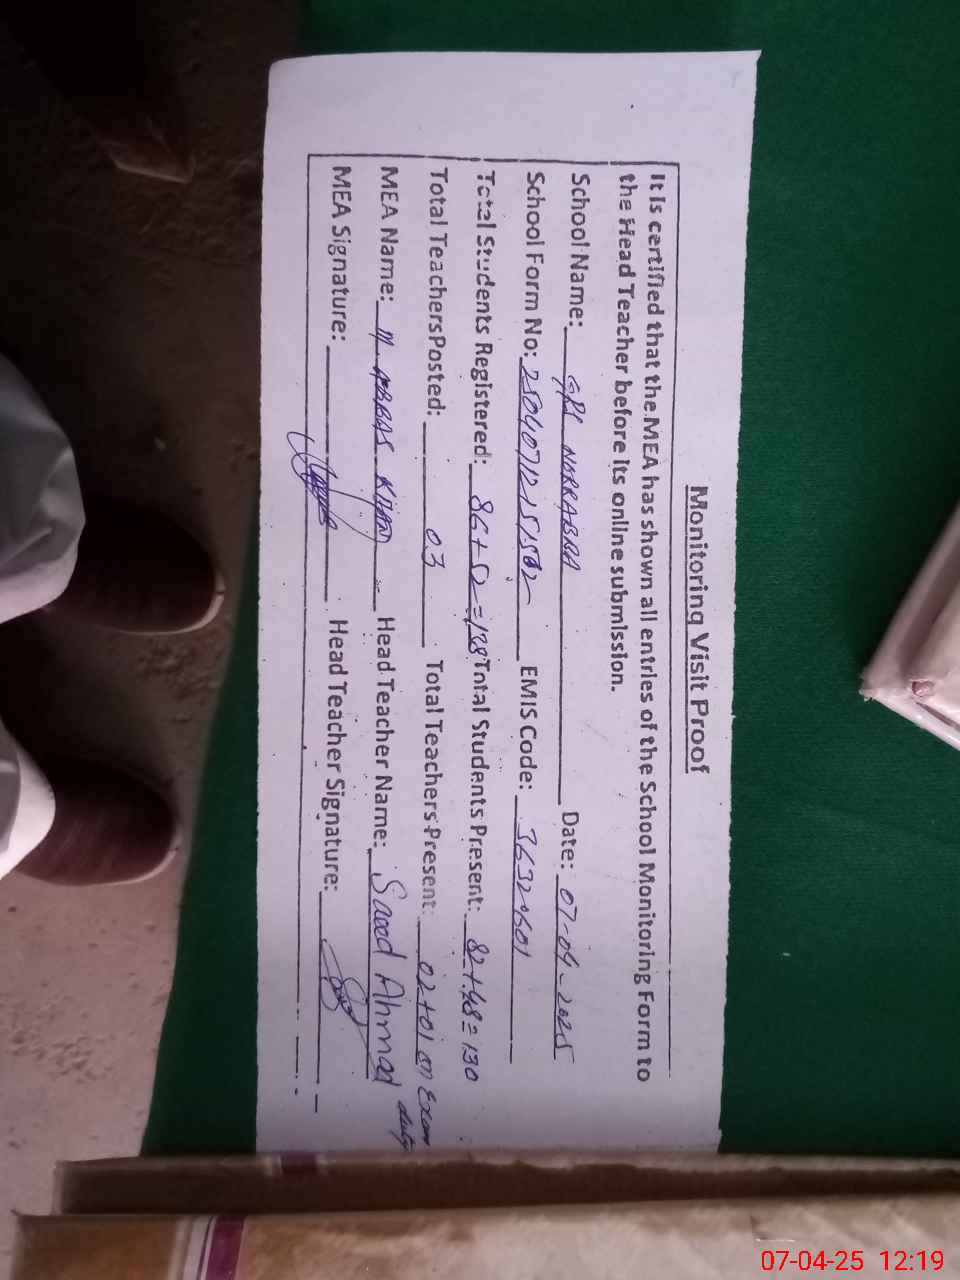 Monitoring Visit Proof
It is certified that the MEA has shown all entries of the School Monitoring Form to
the Head Teacher before its online submission.
School Name: GPS Date: 07-04-2025
School Form No: EMIS Code: 36320601
Total Students Registered: 86+52=138 Total Students Present: 82+48=130
Total Teachers Posted: 03 Total Teachers Present: 02+01 on Exam duty
MEA Name: M ABBAS KHAN Head Teacher Name: Saeed Ahmad
MEA Signature: Head Teacher Signature:
07-04-25 12:19